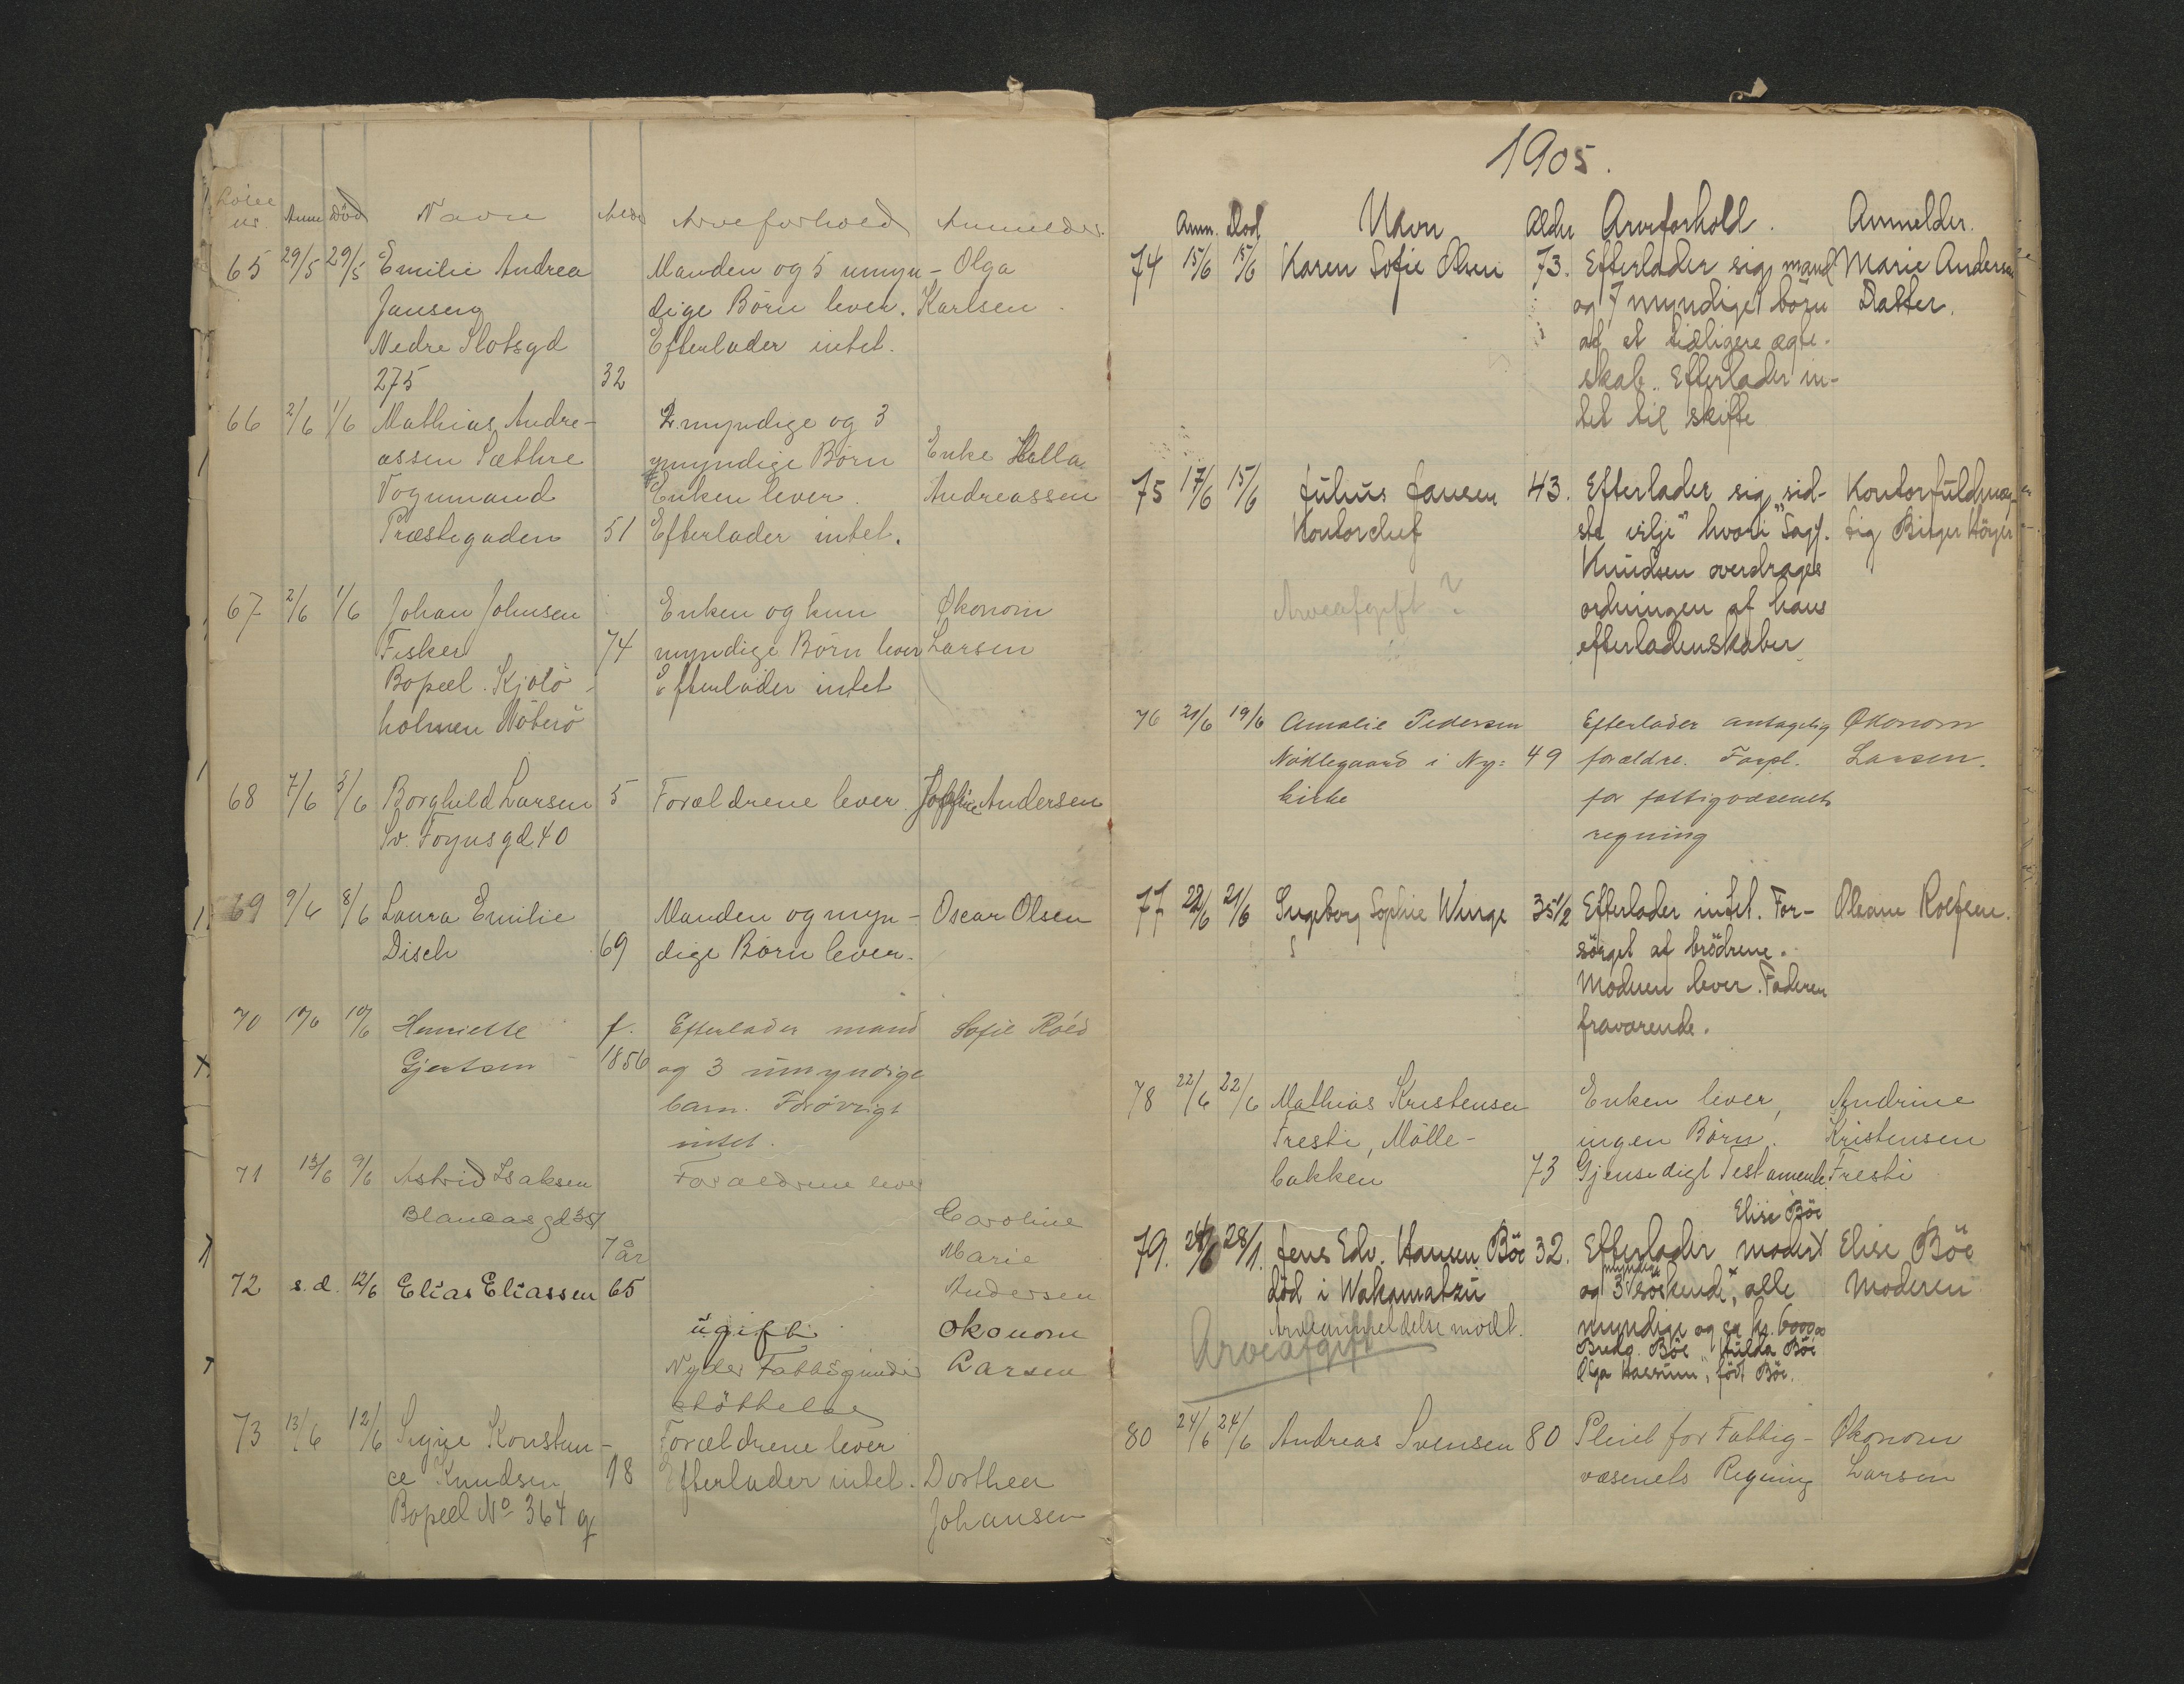 Löbe nr. Anm. Död Navn Alder Arveforhold Anmelder.
65 29/5 29/5 Emilie Andrea Manden og 5 umyn- Olga
Jansen dige Börn lever. Karlsen
Nedre Slotsgd Efterlader intet.
275 32
66 2/6 1/6 Mathias Andre- 2 myndige og 3
assen Sæthre umyndige Börn Enke Hella
Vognmand Enken lever. Andreassen
Præstegaden 51 Efterlader intet.
67 2/6 1/6 Johan Johnsen Enken og kun Økonom
Fisker 74 myndige Börn lever Larsen
Bopæl. Kjölö- Efterlader intet
holmen Nöterö
68 7/6 5/6 Borghild Larsen 5 Forældrene lever Josefine Andersen
Sv. Foynsgd 40
69 9/6 8/6 Laura Emilie Manden og myn- Oscar Olsen
Disch 69 dige Börn lever.
70 10/6 10/6 Henriette f. Efterlader mand Sofie Röed
Gjertsen 1856 og 3 umyndige
barn. Forövrigt
intet.
71 13/6 9/6 Astrid Isaksen Forældrene lever
Blancasgd 357 Caroline
7 år Marie
72 s.d. 12/6 Elias Eliassen 65 Andersen
ugift Økonom
Nyder Fattigunder Larsen
støttelse
73 13/6 12/6 Signe Konstan- Forældrene lever
ce Knudsen 18 Efterlader intet. Dorthea
Bopæl No 364 g Johansen
1905.
Anm. Död Navn Alder Arveforhold. Anmelder.
74 15/6 15/6 Karen Sofie Olsen 73. Efterlader sig mand Marie Andersen
og 7 myndige börn Datter.
af et tidligere ægte-
skab. Efterlader in-
tet til skifte
75 17/6 15/6 Julius Jansen 43. Efterlader sig "sid- Kontorfuldmæg-
Kontorchef ste vilje" hvori Sagf. tig Birger
Knudsen overdrages
Arveafgift? ordningen af hans
efterladenskaber
76 21/6 19/6 Amalie Pedersen Efterlader antagelig Økonom
Nöklegaard i Ny= 49 forældre. Forpl. Larsen.
kirke for fattigvæsenets
regning
77 22/6 21/6 Ingeborg Sophie Winge 35 1/2 Efterlader intet. For- Oleane Roefsen.
sörget af brödrene.
Moderen lever. Faderen
fraværende.
78 22/6 22/6 Mathias Kristensen Enken lever, Andrine
Fresti, Mölle- ingen Börn. Kristensen
bakken 73 Gjensidigt Testamente Fresti
Elise Böe
79. 24/6 28/1. Jens Edv. Hansen Böe 32. Efterlader moder Elise Böe
död i Wakamatzu og 3 myndige söskende, alle Moderen
Arveanmeldelse modt. myndige og ca kr. 6000.00
Arveafgift Bredo Böe, Hulda Böe
Olga , född Böe.
80 24/6 24/6 Andreas Svensen 80 Pleiet for Fattig- Økonom
væsenets Regning Larsen